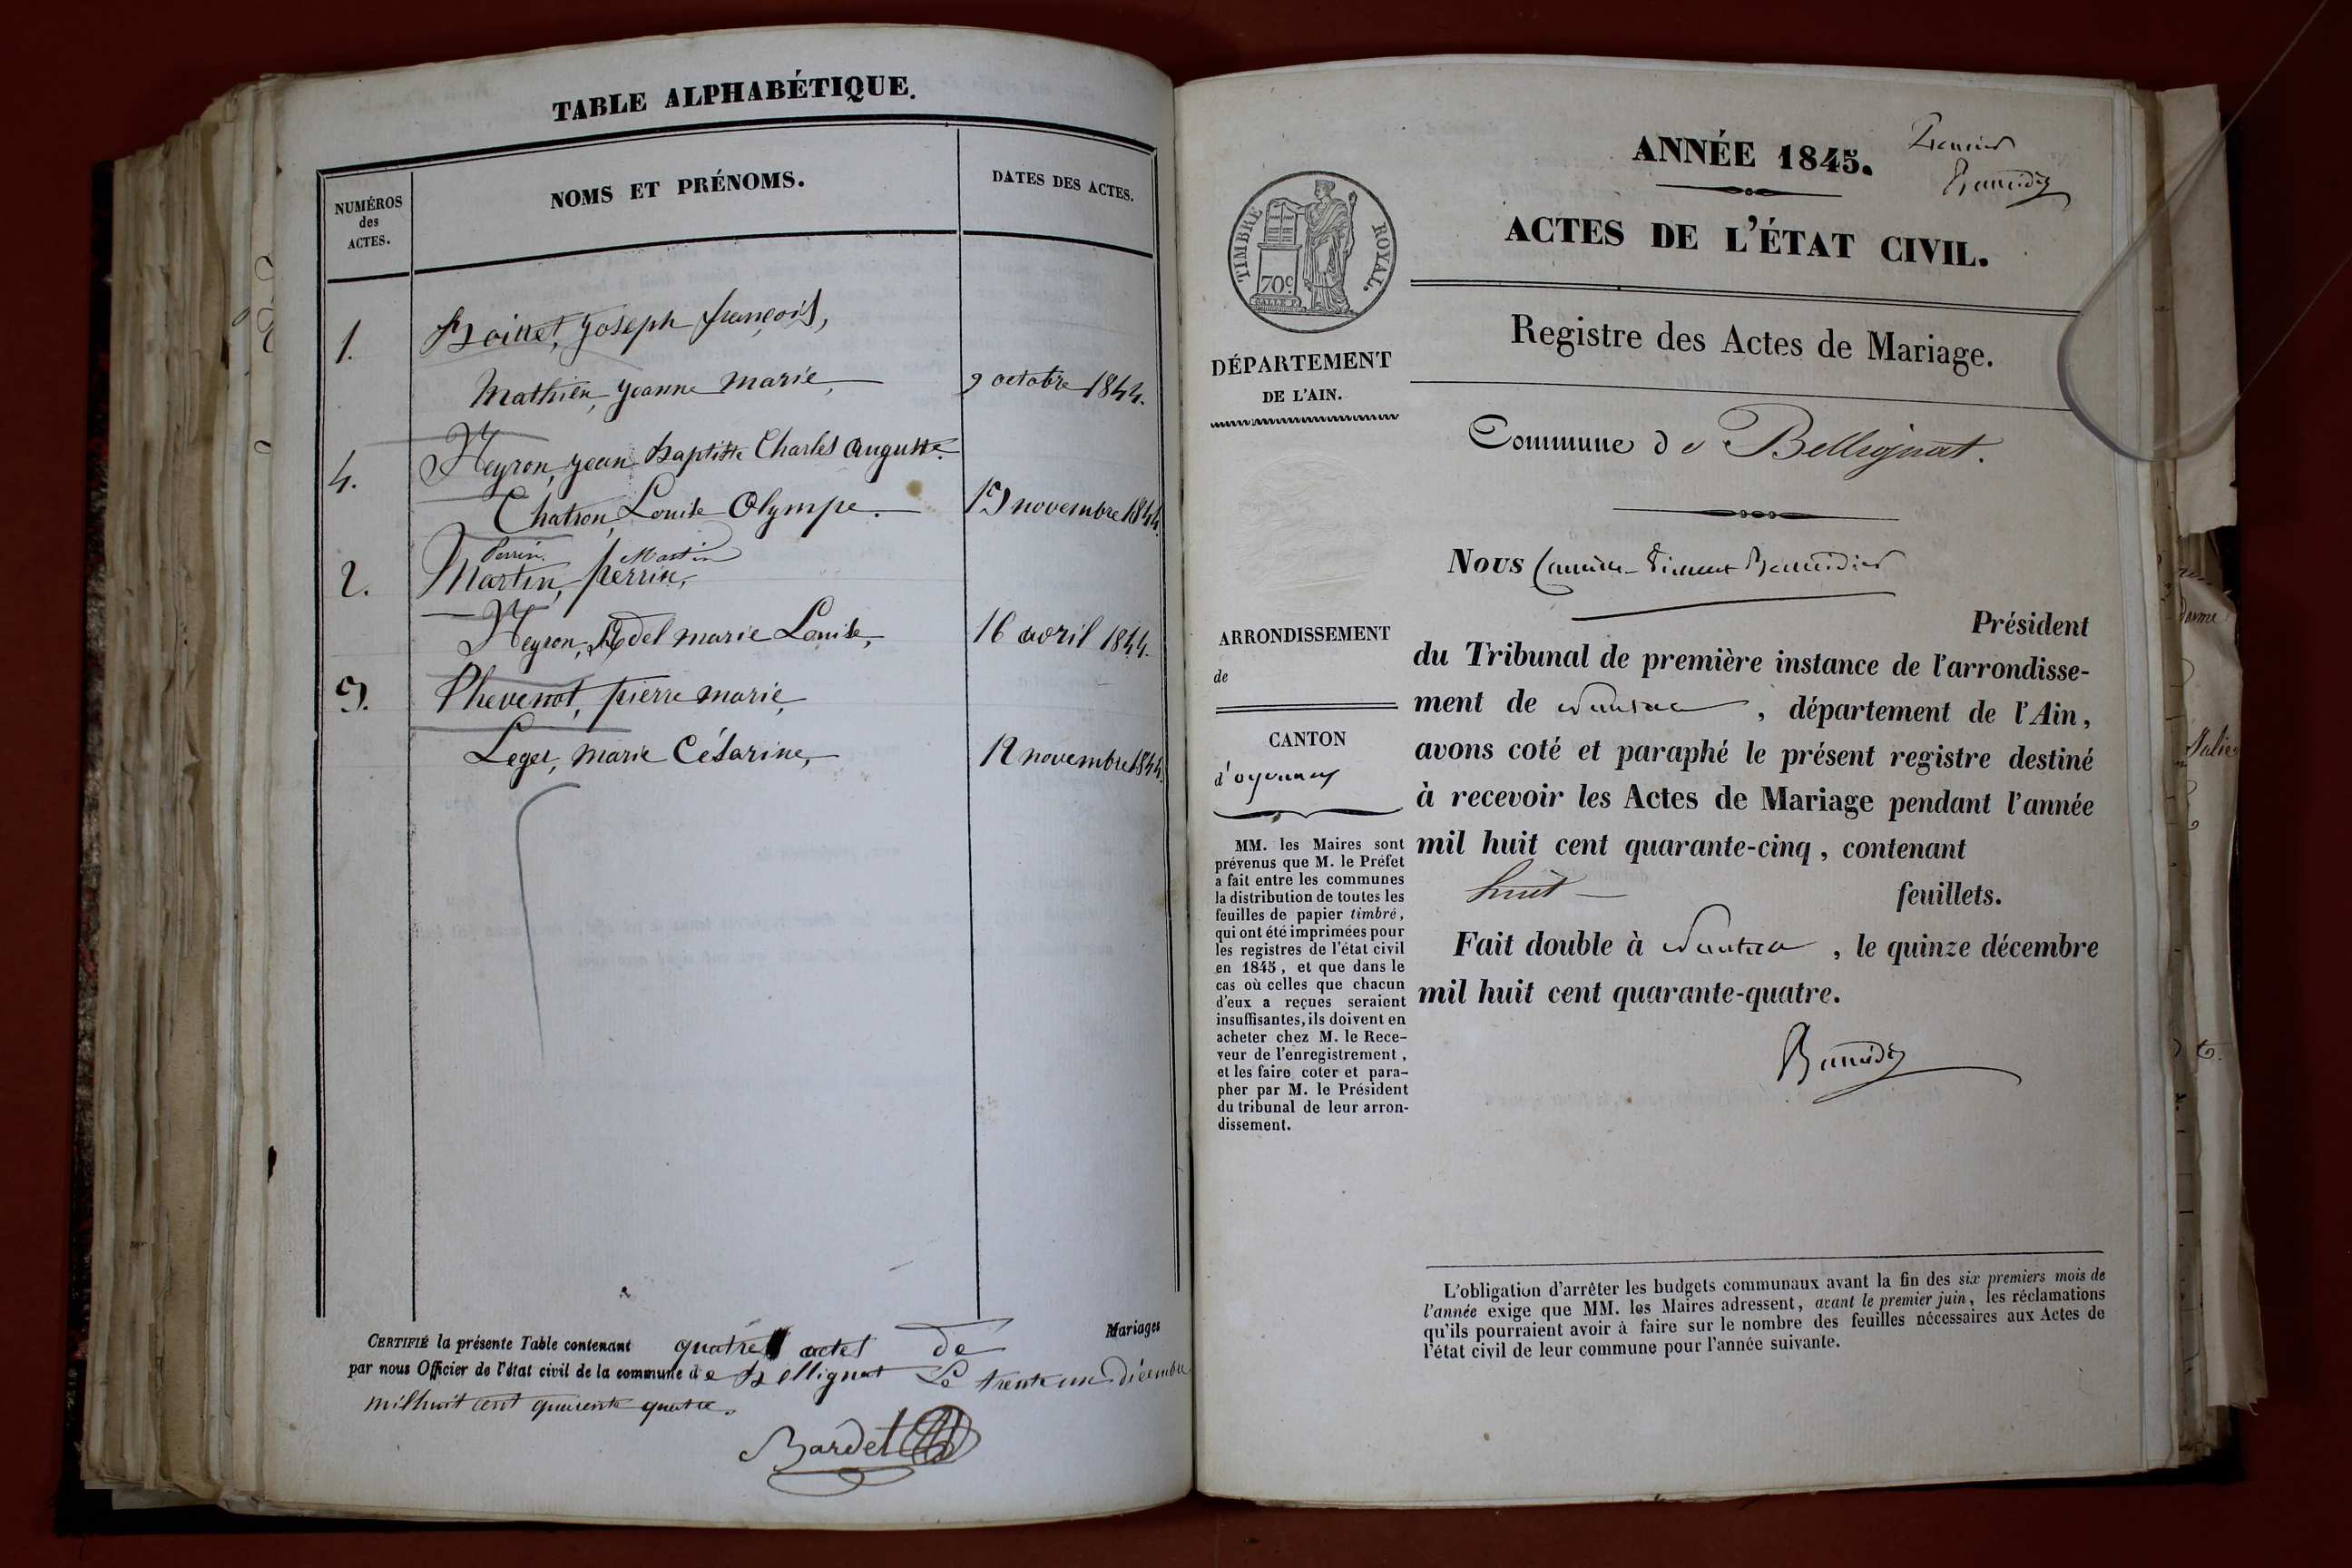 TABLE ALPHABÉTIQUE.
NUMÉROS
des
ACTES.
NOMS ET PRÉNOMS.
DATES DES ACTES.
1. Joseph françois,
Mathieu, Jeanne Marie, 9 octobre 1844.
4. Neyron, jean Baptiste Charles Auguste
Chatron, Louise Olympe. novembre 1844.
Perrin. Martin
2. Martin, perrin,
Neyron, Adel marie Louise, 16 avril 1844.
3. Thevenot, pierre marie,
Leger, Marie Césarine, 12 novembre 1844.
CERTIFIÉ la présente Table contenant quatre actes de Mariages
par nous Officier de l'état civil de la commune de Bellignat Le trente un Décembre
mil huit cent quarente quatre.
Bardet
ANNÉE 1845.
Premier
ACTES DE L'ÉTAT CIVIL.
TIMBRE ROYAL.
70c.
DÉPARTEMENT
DE L'AIN.
Registre des Actes de Mariage.
Commune de Bellignat.
NOUS
Président
du Tribunal de première instance de l'arrondisse-
ment de Nantua, département de l'Ain,
avons coté et paraphé le présent registre destiné
à recevoir les Actes de Mariage pendant l'année
mil huit cent quarante-cinq, contenant
huit feuillets.
Fait double à Nantua, le quinze décembre
mil huit cent quarante-quatre.
ARRONDISSEMENT
de
CANTON
d'oyonnax
MM. les Maires sont
prévenus que M. le Préfet
a fait entre les communes
la distribution de toutes les
feuilles de papier timbré,
qui ont été imprimées pour
les registres de l'état civil
en 1845, et que dans le
cas où celles que chacun
d'eux a reçues seraient
insuffisantes, ils doivent en
acheter chez M. le Rece-
veur de l'enregistrement,
et les faire coter et para-
pher par M. le Président
du tribunal de leur arron-
dissement.
L'obligation d'arrêter les budgets communaux avant la fin des six premiers mois de
l'année exige que MM. les Maires adressent, avant le premier juin, les réclamations
qu'ils pourraient avoir à faire sur le nombre des feuilles nécessaires aux Actes de
l'état civil de leur commune pour l'année suivante.